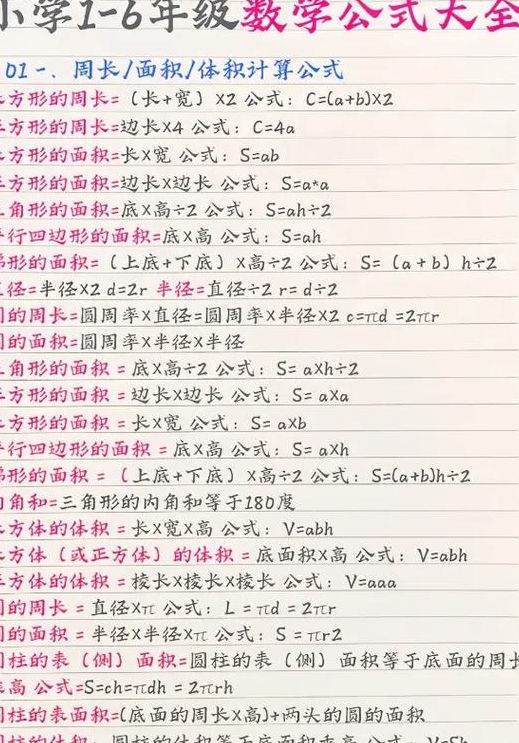 小学1-6年级数学公式大全
01 一、周长/面积/体积计算公式
方形的周长=（长+宽）×2 公式：C=(a+b)×2
方形的周长=边长×4 公式：C=4a
方形的面积=长×宽 公式：S=ab
方形的面积=边长×边长 公式：S=a*a
角形的面积=底×高÷2 公式：S=ah÷2
行四边形的面积=底×高 公式：S=ah
形的面积=（上底+下底）×高÷2 公式：S=（a+b）h÷2
径=半径×2 d=2r 半径=直径÷2 r=d÷2
的周长=圆周率×直径=圆周率×半径×2 c=πd =2πr
的面积=圆周率×半径×半径
角形的面积 = 底×高÷2 公式：S= a×h÷2
方形的面积 = 边长×边长 公式：S= a×a
方形的面积 = 长×宽 公式：S= a×b
行四边形的面积 = 底×高 公式：S= a×h
形的面积 =（上底+下底）×高÷2 公式：S=(a+b)h÷2
角和=三角形的内角和等于180度
方体的体积 = 长×宽×高 公式：V=abh
方体（或正方体）的体积 = 底面积×高 公式：V=abh
方体的体积 = 棱长×棱长×棱长 公式：V=aaa
的周长 = 直径×π 公式：L = πd = 2πr
的面积 = 半径×半径×π 公式：S = πr2
柱的表（侧）面积=圆柱的表（侧）面积等于底面的周长
高 公式=S=ch=πdh = 2πrh
柱的表面积=(底面的周长×高)+两头的圆的面积
柱的体积 圆柱的体积等于底面积乘高 公式：V=Sh